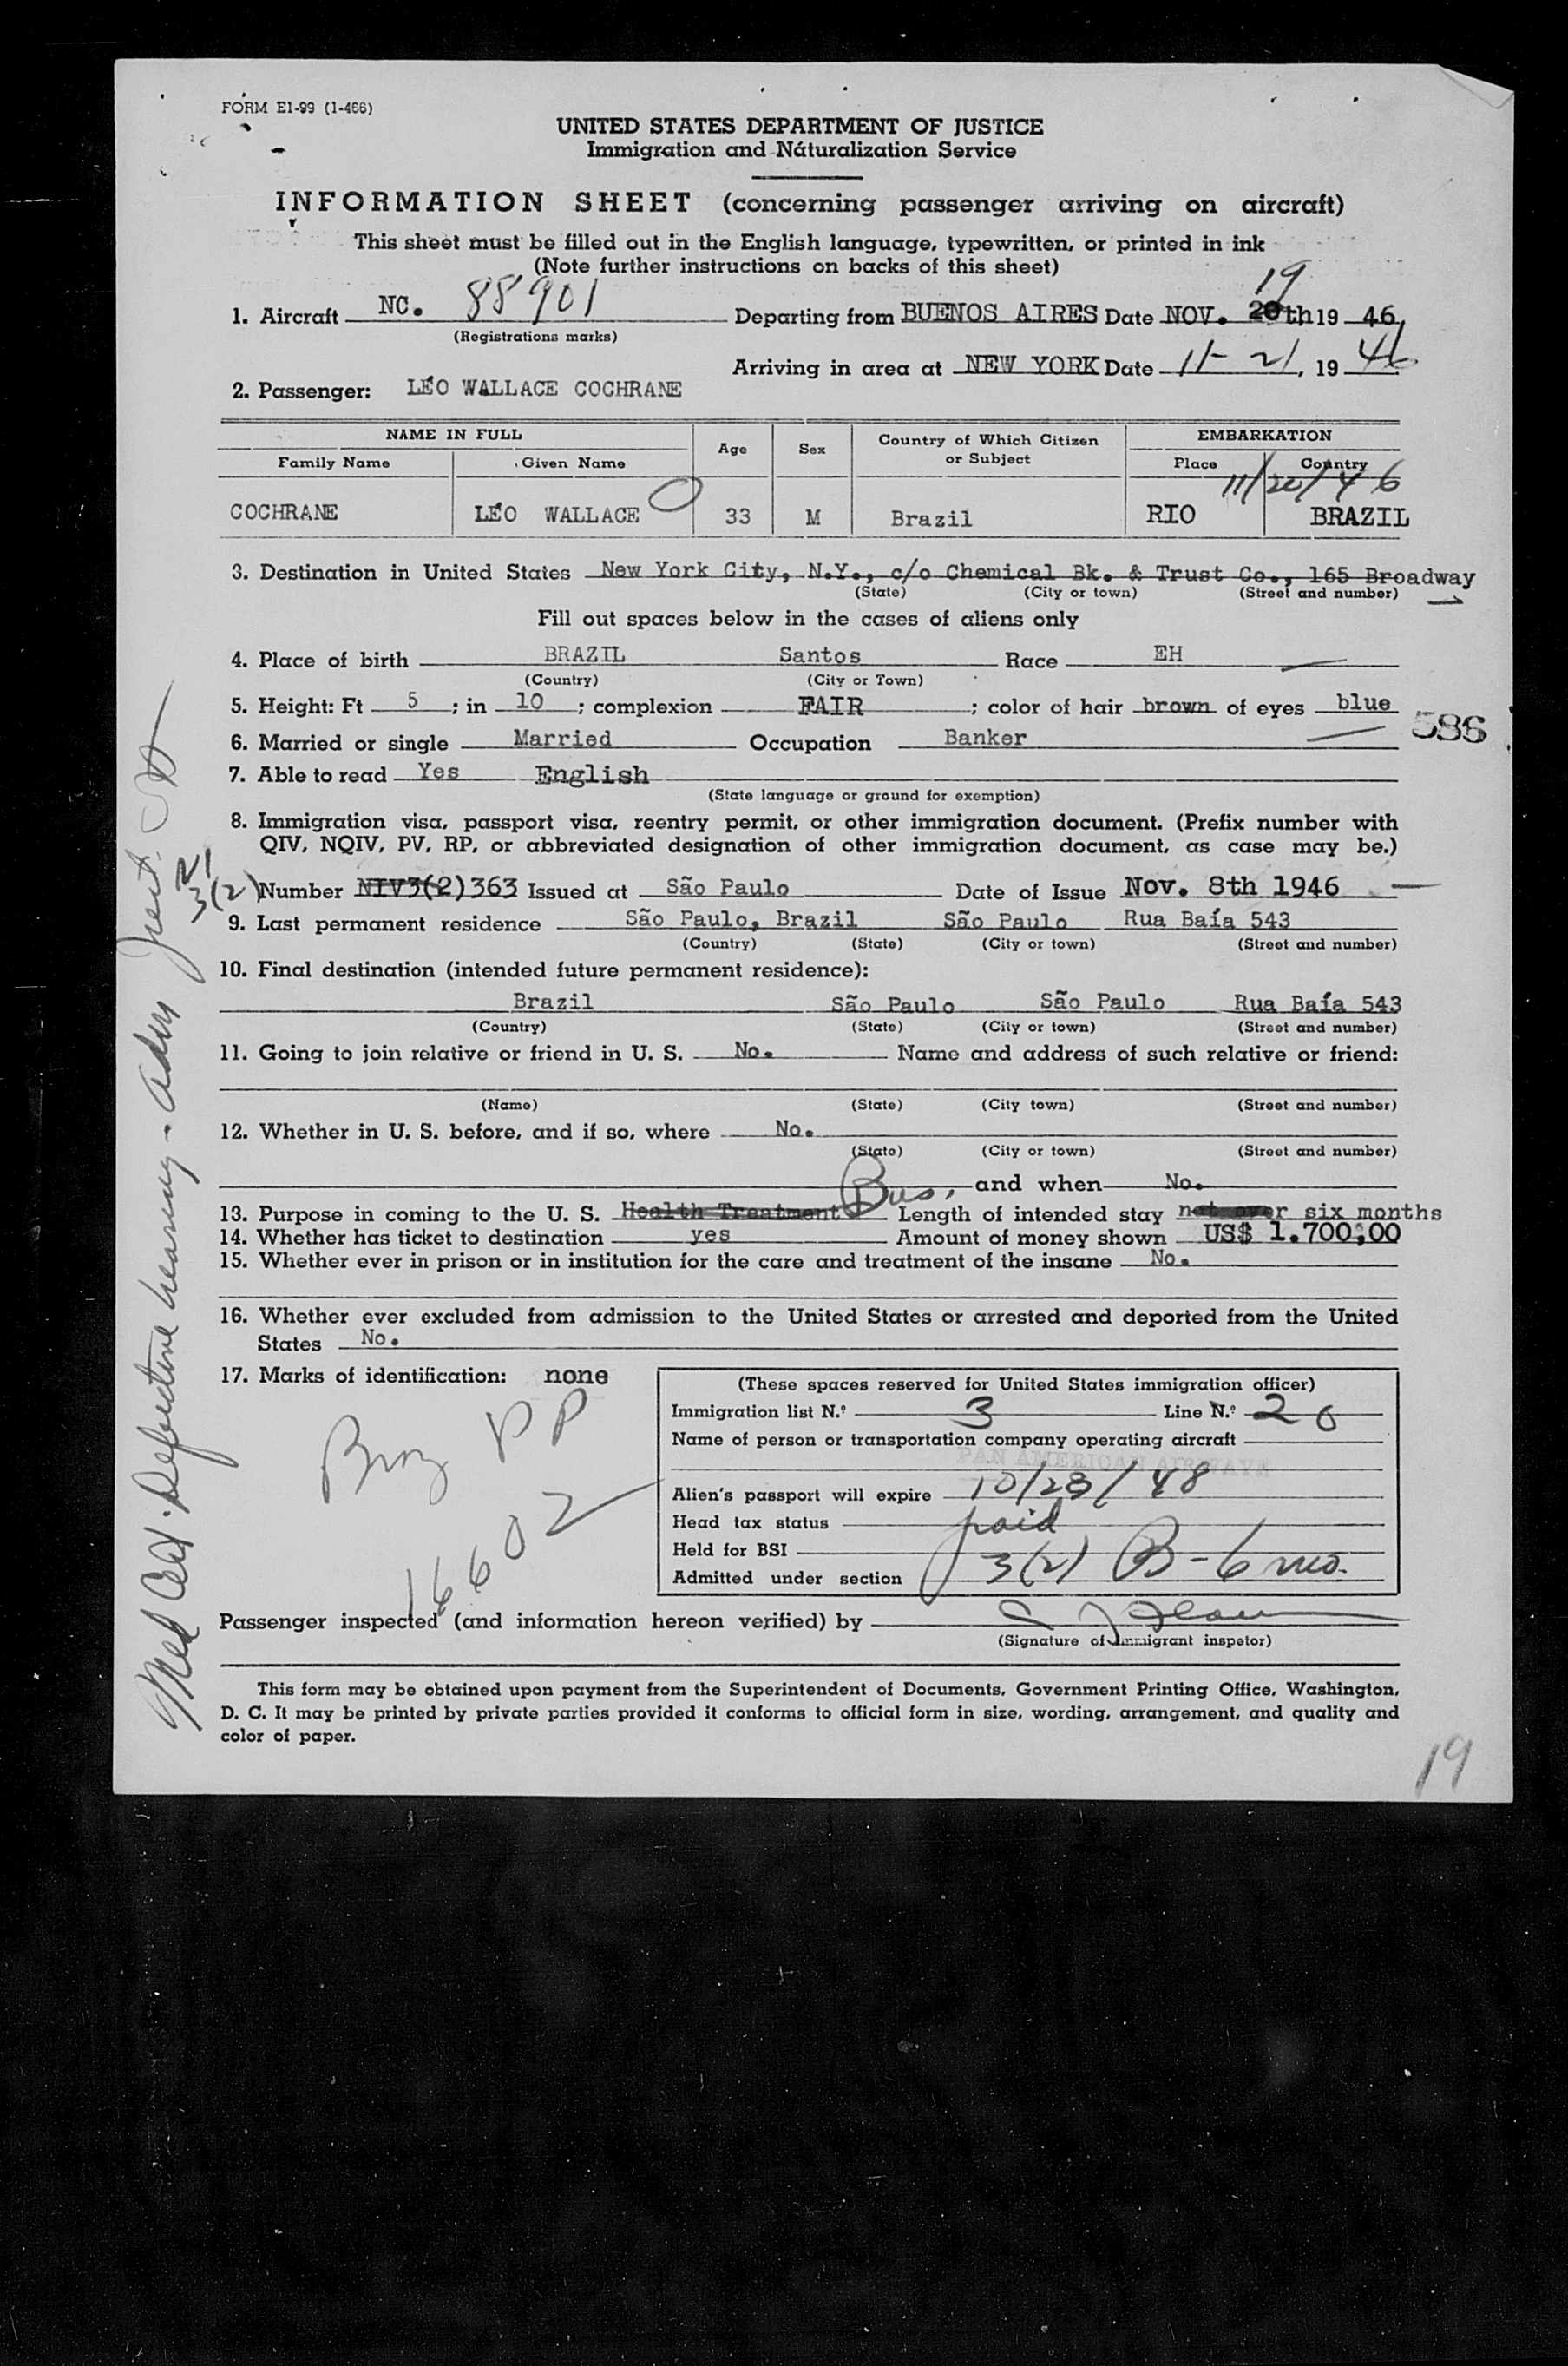 FORM E1-99 (1-466)
UNITED STATES DEPARTMENT OF JUSTICE
Immigration and Naturalization Service
INFORMATION SHEET (concerning passenger arriving on aircraft)
This sheet must be filled out in the English language, typewritten, or printed in ink
(Note further instructions on backs of this sheet)
19
1. Aircraft NC. 88901 Departing from BUENOS AIRES Date NOV. 20th 19 46,
(Registrations marks)
Arriving in area at NEW YORK Date 11-21, 19 46
2. Passenger: LÉO WALLACE COCHRANE
NAME IN FULL Age Sex Country of Which Citizen or Subject EMBARKATION
Family Name Given Name Place Country
11/20/46
COCHRANE LÉO WALLACE 33 M Brazil RIO BRAZIL
3. Destination in United States New York City, N.Y., c/o Chemical Bk. & Trust Co., 165 Broadway
(State) (City or town) (Street and number)
Fill out spaces below in the cases of aliens only
4. Place of birth BRAZIL Santos Race EH
(Country) (City or Town)
5. Height: Ft 5 ; in 10 ; complexion FAIR ; color of hair brown of eyes blue
586
6. Married or single Married Occupation Banker
7. Able to read Yes English
(State language or ground for exemption)
8. Immigration visa, passport visa, reentry permit, or other immigration document. (Prefix number with
QIV, NQIV, PV, RP, or abbreviated designation of other immigration document, as case may be.)
3(2)
Number NIV3(2)363 Issued at São Paulo Date of Issue Nov. 8th 1946
9. Last permanent residence São Paulo, Brazil São Paulo Rua Baía 543
(Country) (State) (City or town) (Street and number)
10. Final destination (intended future permanent residence):
Brazil São Paulo São Paulo Rua Baía 543
(Country) (State) (City or town) (Street and number)
11. Going to join relative or friend in U. S. No. Name and address of such relative or friend:
(Name) (State) (City town) (Street and number)
12. Whether in U. S. before, and if so, where No.
(State) (City or town) (Street and number)
and when No.
13. Purpose in coming to the U. S. Health Treatment Bus. Length of intended stay not over six months
14. Whether has ticket to destination yes Amount of money shown US$ 1.700,00
15. Whether ever in prison or in institution for the care and treatment of the insane No.
16. Whether ever excluded from admission to the United States or arrested and deported from the United
States No.
17. Marks of identification: none
Braz PP
16602
(These spaces reserved for United States immigration officer)
Immigration list N.º 3 Line N.º 20
Name of person or transportation company operating aircraft
PAN AMERICAN AIRWAYS
Alien's passport will expire 10/23/48
Head tax status paid
Held for BSI
Admitted under section 3(2) B-6 mo.
Passenger inspected (and information hereon verified) by
(Signature of immigrant inspetor)
This form may be obtained upon payment from the Superintendent of Documents, Government Printing Office, Washington,
D. C. It may be printed by private parties provided it conforms to official form in size, wording, arrangement, and quality and
color of paper.
19
Med Cert. Defective hearing - Adm